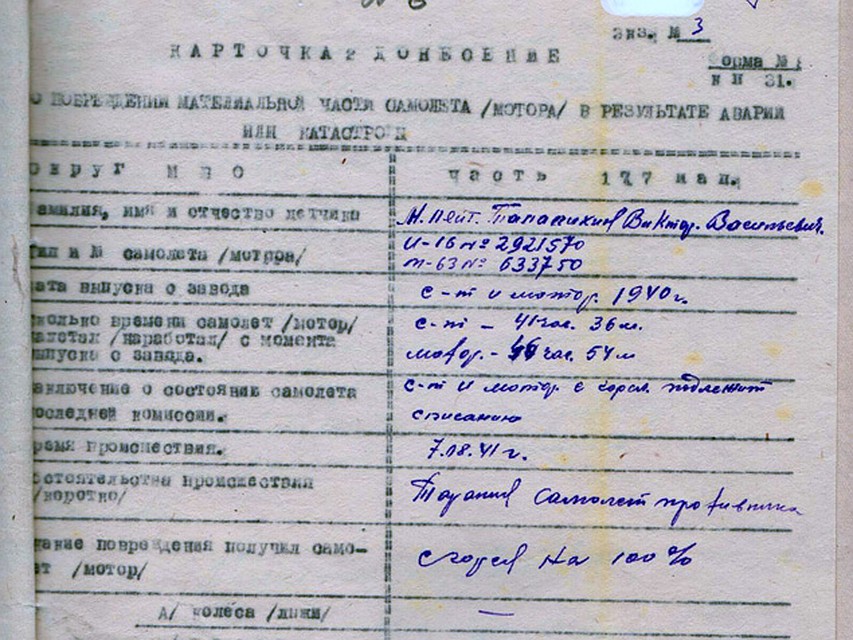 экз. № 3
КАРТОЧКА ДОНЕСЕНИЕ
Форма №
И И 31.
О ПОВРЕЖДЕНИИ МАТЕРИАЛЬНОЙ ЧАСТИ САМОЛЕТА /МОТОРА/ В РЕЗУЛЬТАТЕ АВАРИИ
ИЛИ КАТАСТРОФ
округ МВО часть 177 иап.
амилия, имя и отчество летчика М. лейт. Талалихин Виктор Васильевич.
ип и № самолета /мотора/ И-16 № 2921570
м-63 № 633750
ата выпуска с завода с-т и мотор. 1940 г.
колько времени самолет /мотор/ с-т - 41 час. 36 м.
алетал /наработал/ с момента
ыпуска с завода. мотор. - час. 54 м
аключение о состоянии самолета с-т и мотор подлежит
оследней комиссии. списанию
ремя происшествия. 7.08.41 г.
бстоятельства происшествия
/коротко/ Таранил самолет противника
акие повреждения получил само-
ет /мотор/ сгорел на 100%
А/ колеса /лыжи/ —